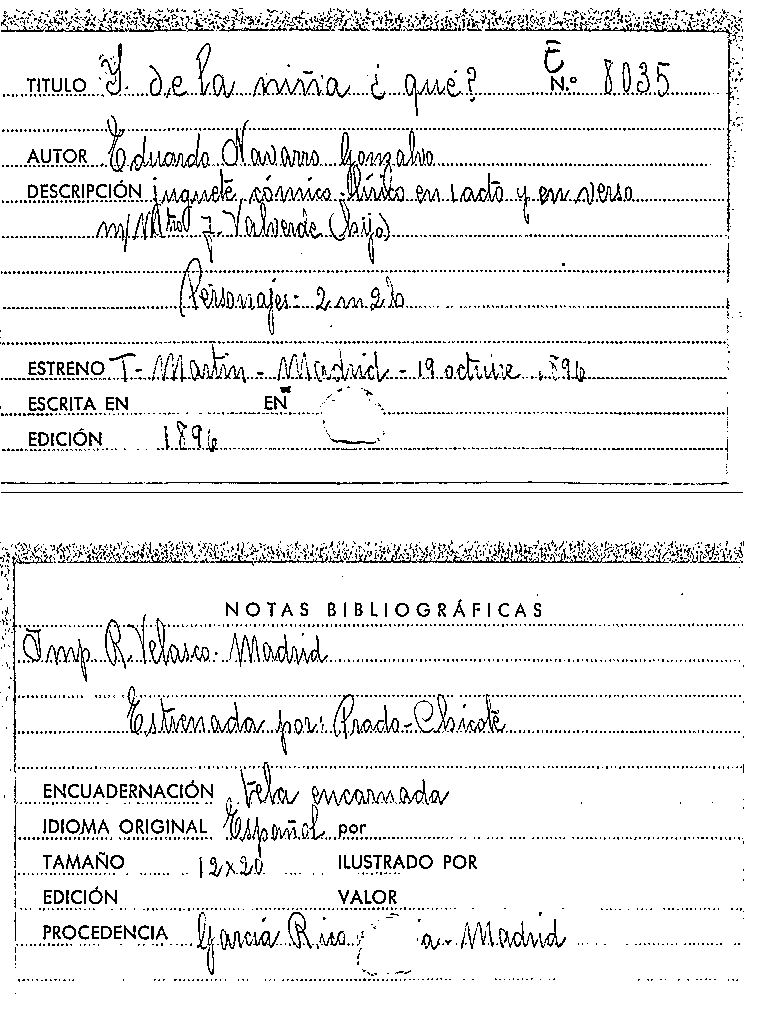 E
TITULO Y. de la niña ¿ qué? N.º 8035
AUTOR Eduardo Navarro Gonzalvo
DESCRIPCIÓN juguete, cómico-lírico en 1 acto y en verso
m/ Mtro J. Valverde (hijo)
Personajes- 2 m 2 h
ESTRENO T- Martin - Madrid - 19 octubre 1896
ESCRITA EN EN
EDICIÓN 1896
NOTAS BIBLIOGRÁFICAS
Imp. R. Velasco. Madrid
Estrenada por: Prado-Chicote
ENCUADERNACIÓN tela encarnada
IDIOMA ORIGINAL Español por
TAMAÑO 12x20 ILUSTRADO POR
EDICIÓN VALOR
PROCEDENCIA García Rico a.- Madrid